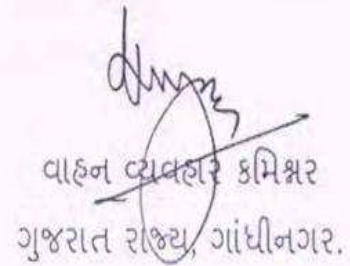 વાહન વ્યવહાર કમિશ્નર
ગુજરાત રાજ્ય, ગાંધીનગર.